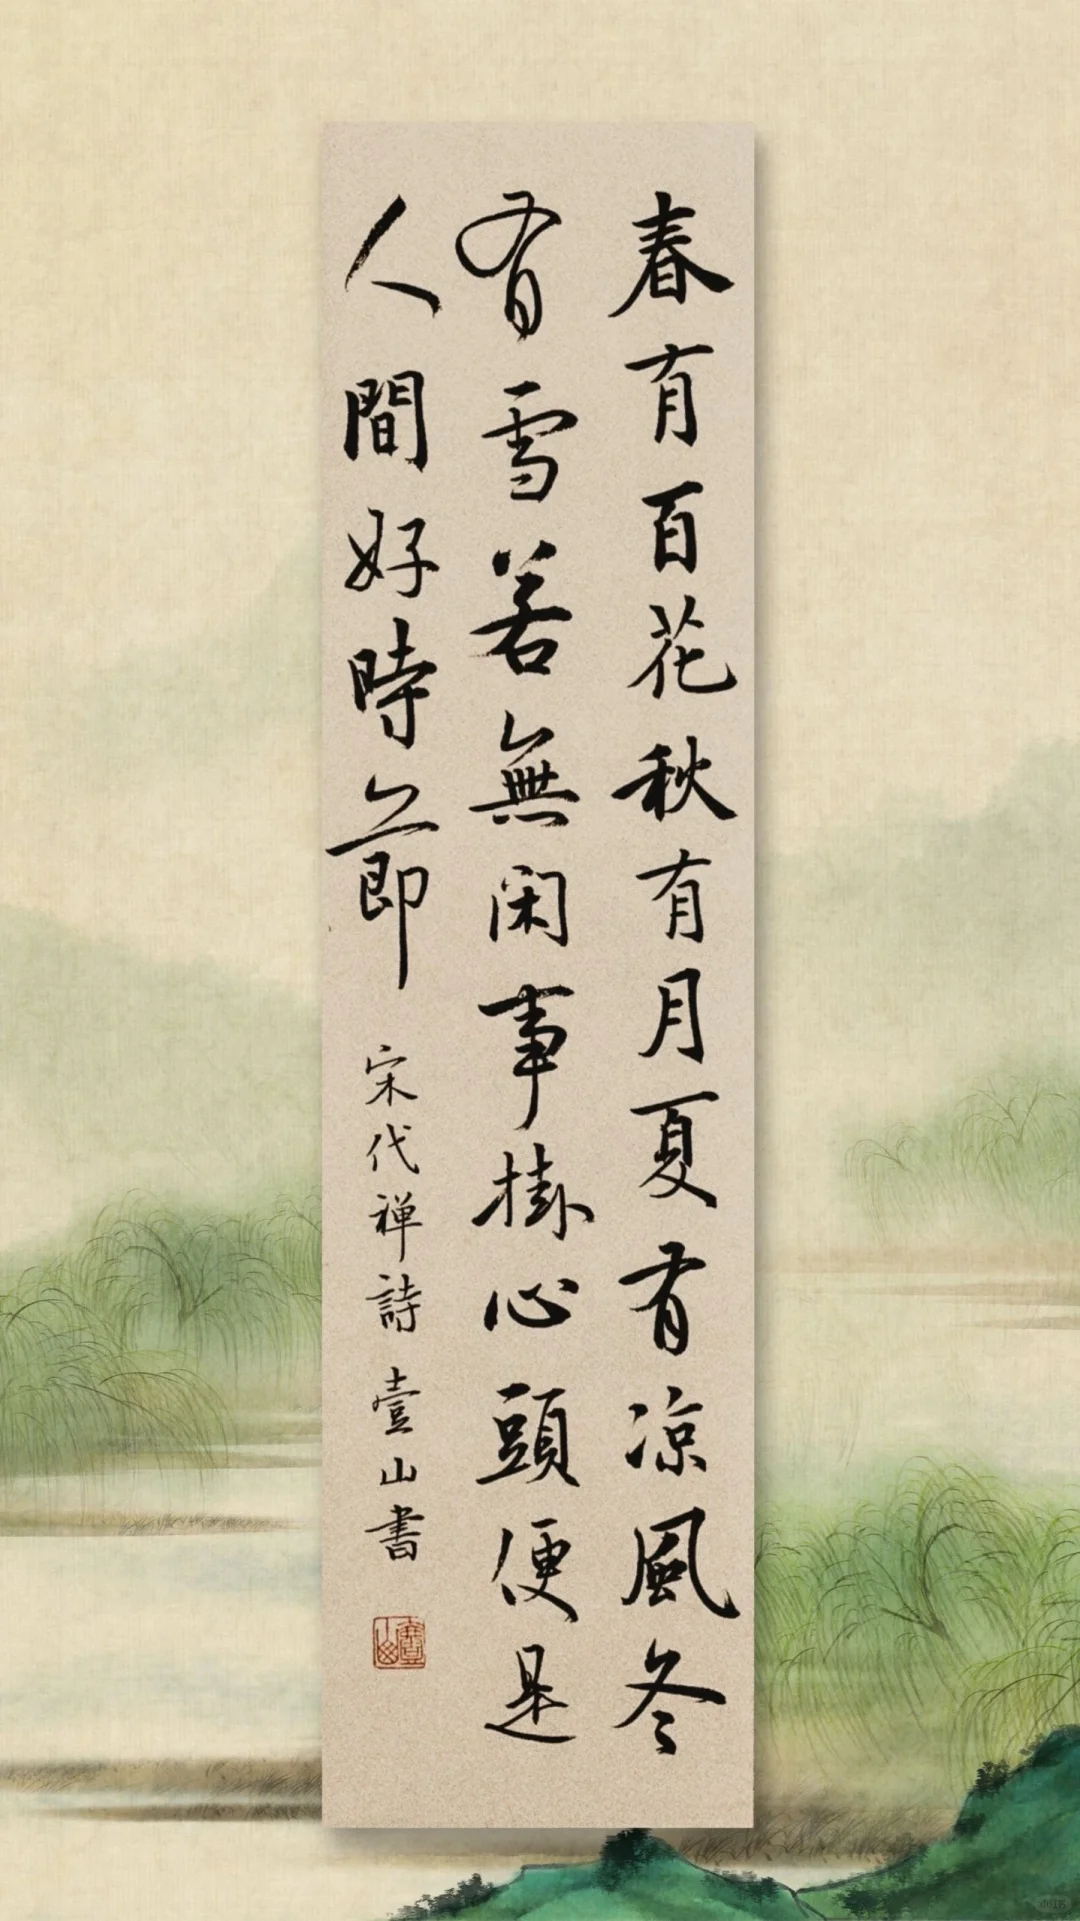 春有百花秋有月夏有凉風冬
有雪若無闲事掛心頭便是
人間好時節
宋代禅詩 壹山書
壹山